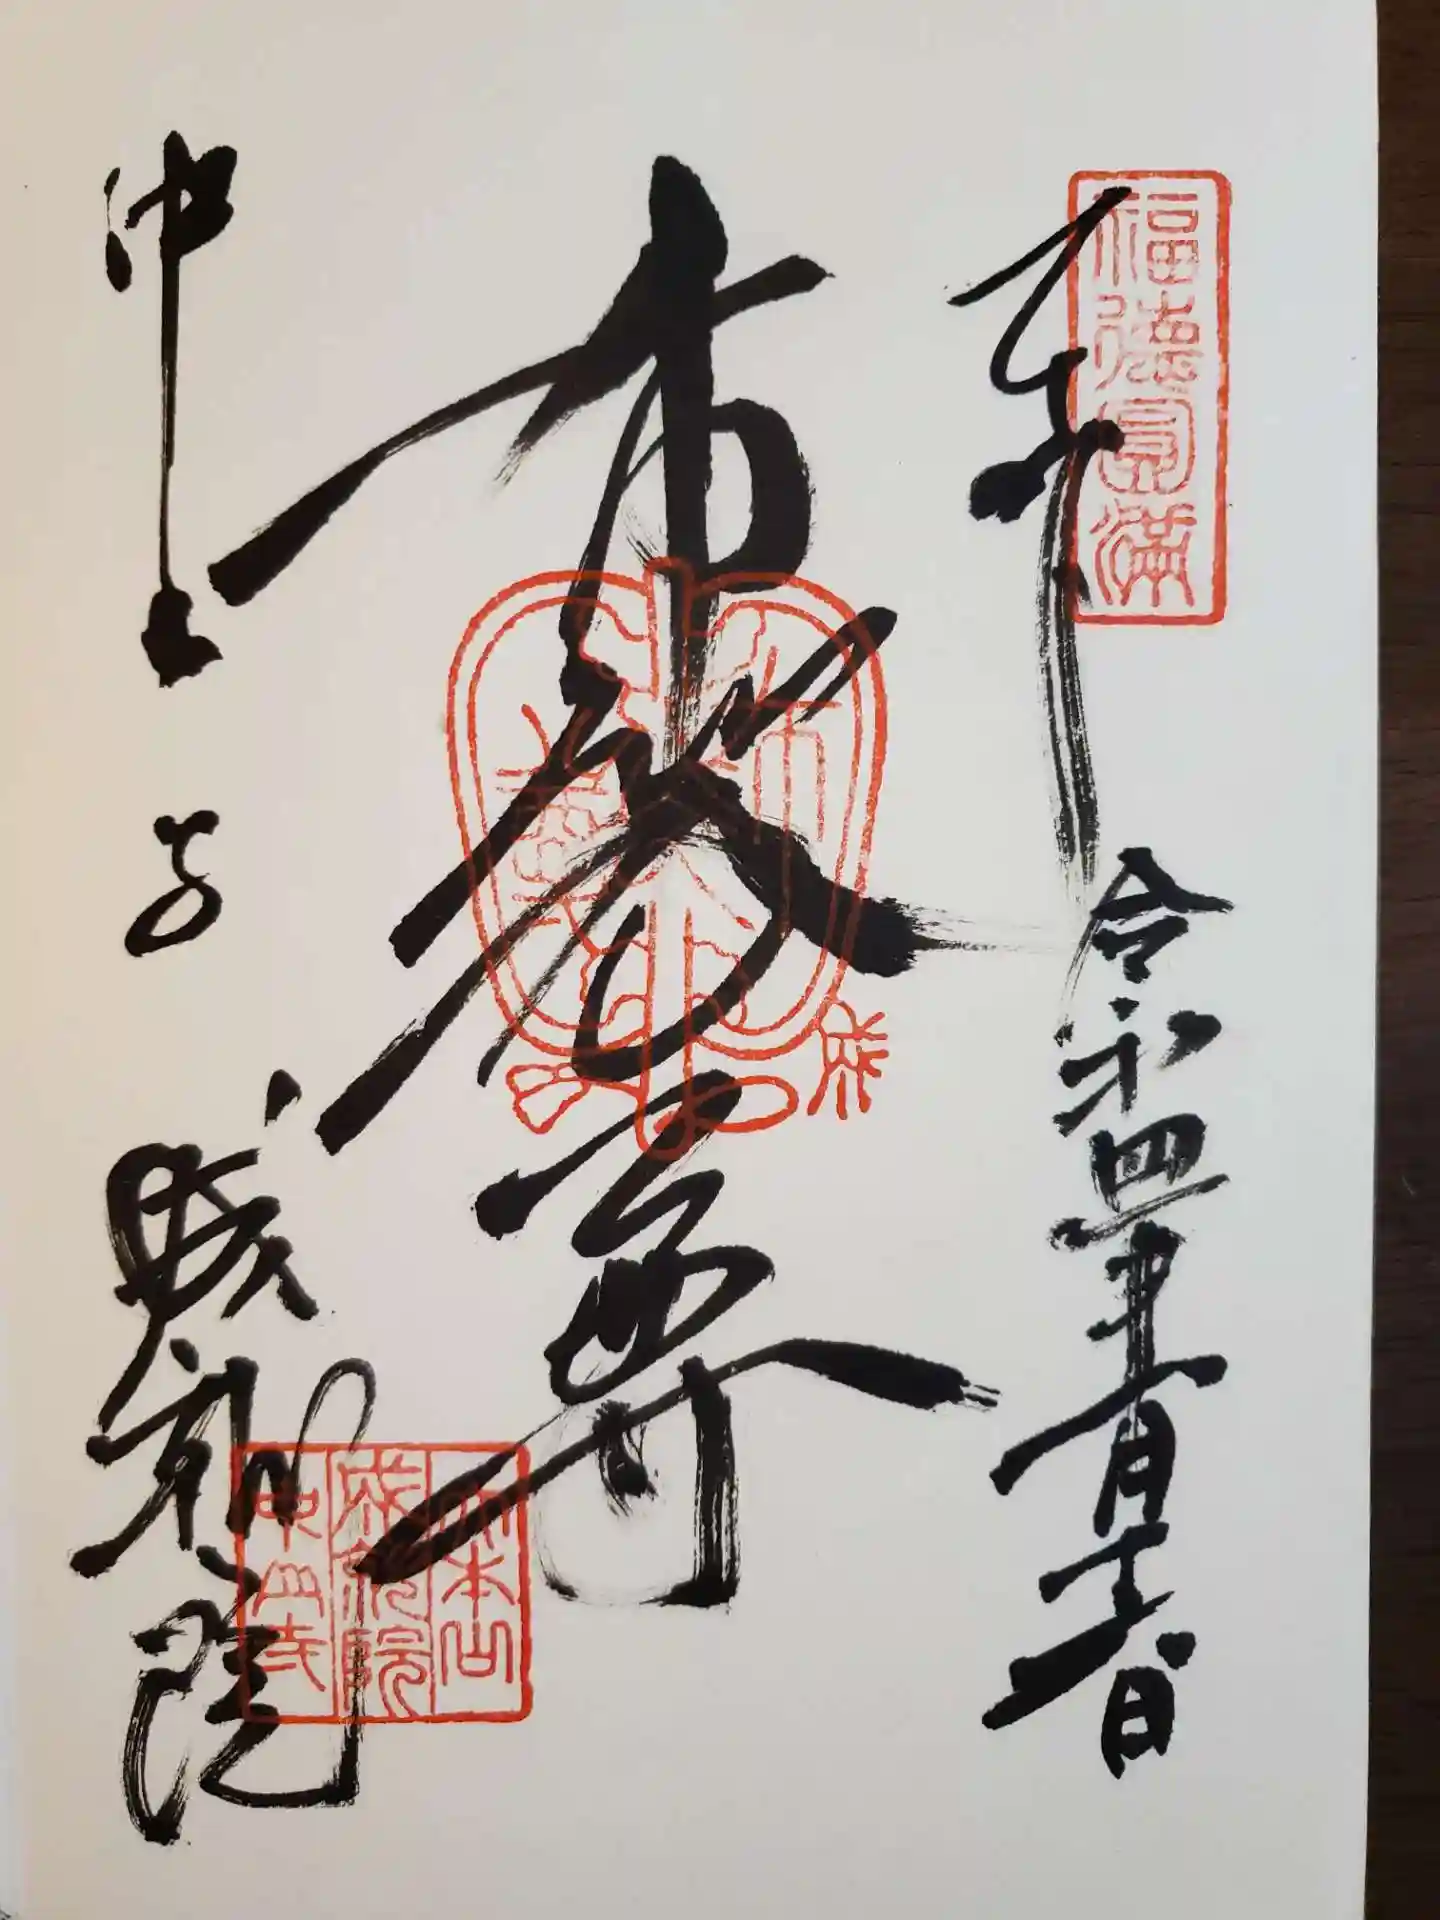 福徳円満
奉拝
令和四年一月十一日
布袋尊
中山寺
成就院
大本山
成就院
中山寺